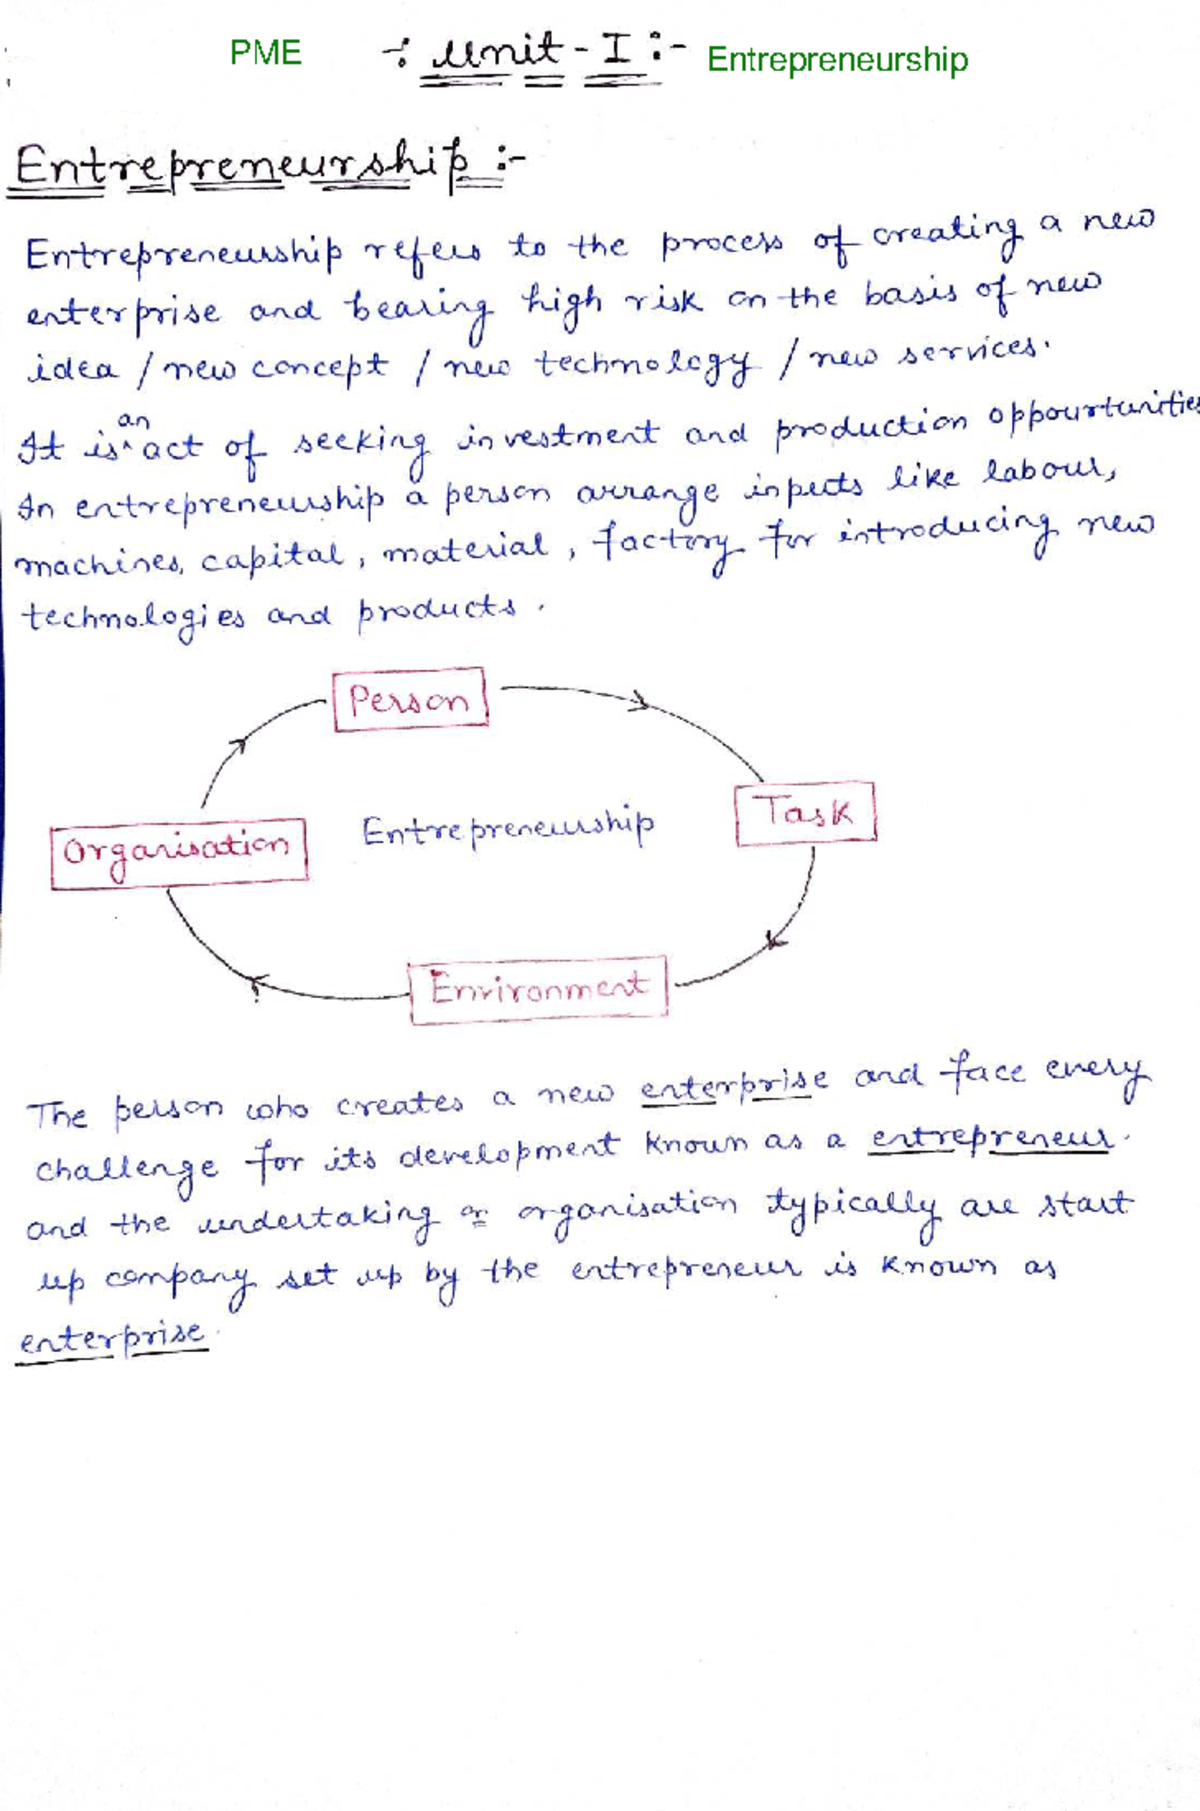 PME -: Unit-I :- Entrepreneurship
Entrepreneurship :-
Entrepreneurship refers to the process of creating a new
enterprise and bearing high risk on the basis of new
idea / new concept / new technology / new services.
It is an act of seeking investment and production oppourtunities
In entrepreneurship a person arrange inputs like labour,
machines, capital, material, factory for introducing new
technologies and products.
Person
Task
Entrepreneurship
Organisation
Environment
The person who creates a new enterprise and face every
challenge for its development known as a entrepreneur.
and the undertaking or organisation typically are start
up company set up by the entrepreneur is known as
enterprise.